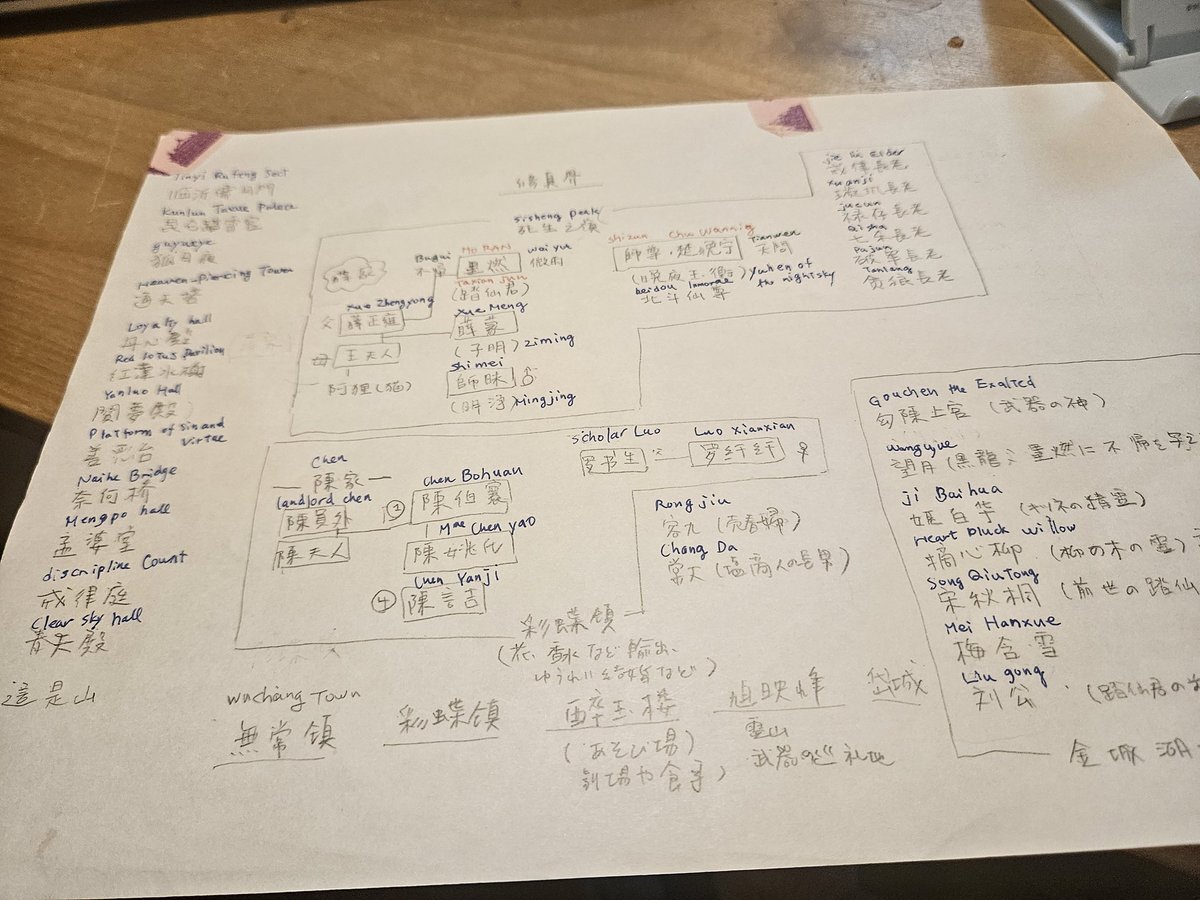 Jinyi Rufeng Sect
Kunlun Taxue Palace
昆侖踏雪宮
guyueye
孤月夜
Heaven-piercing Tower
通天塔
Loyalty hall
丹心殿
Red lotus Pavilion
紅蓮水榭
Yanluo Hall
閻夢殿
Platform of Sin and Virtue
善悪台
Naihe Bridge
奈何橋
Mengpo hall
孟婆堂
discipline Count
戒律庭
Clear sky hall
這是山
修真界
sisheng peak
死生之巔
薛家
Bugui
不歸
Mo RAN
墨燃
Taxian Jun
(踏仙君)
wei yu
微雨
shizun Chu Wannig
師尊・楚晩宁
Tianwen
天問
(晩夜玉衡)
Yuhen of the night sky
beidou Immoral
北斗仙尊
Xue Zhengyong
父 薛正雍
母 王夫人
阿狸(猫)
Xue Meng
薛蒙
(子明) ziming
shimei
師昧 ♂
(明浄) Mingjing
jie lü Elder
戒律長老
xuanji
璇璣長老
jucun
禄存長老
Qisha
七殺長老
Pojun
破軍長老
Tanlang
貪狼長老
Chen
陳家
landlord chen
陳員外
陳夫人
② chen Bohuan
陳伯寰
Chen yao
陳姚氏
④ Chen Yanji
陳言吉
scholar Luo
罗书生
Luo xianxian
罗纤纤 ♀
Rong jiu
容九 (売春婦)
Chang Da
常大 (塩商人の長男)
彩蝶鎮
(花、香水など輸出、
ゆうれい結婚など)
wuchang Town
無常鎮
彩蝶鎮
酔玉楼
(あそび場)
劇場や食事)
旭映峰
霊山
武器の巡礼地
岱城
Gouchen the Exalted
勾陳上宮 (武器の神)
wangyue
望月 (黒龍; 墨燃に不帰を
ji Baihua
姫白华 (キツネの精霊)
Heart Pluck Willow
摘心柳 (柳の木の霊)
Song Qiutong
宋秋桐 (前世の踏仙
Mei Hanxue
梅含雪
Liu gong
刘公 (踏仙君の
金城湖